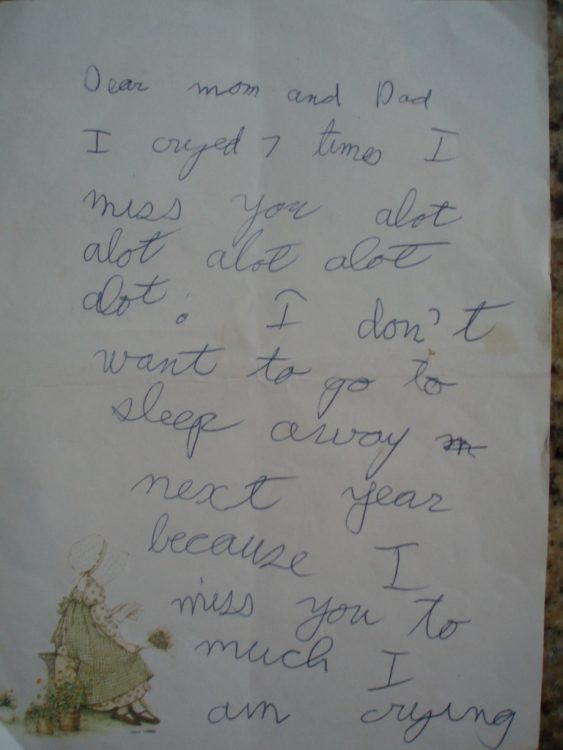 Dear mom and Dad
I cryed 7 times I
miss you alot
alot alot alot
alot! I don't
want to go to
sleep away
next year
because I
miss you to
much I
am crying